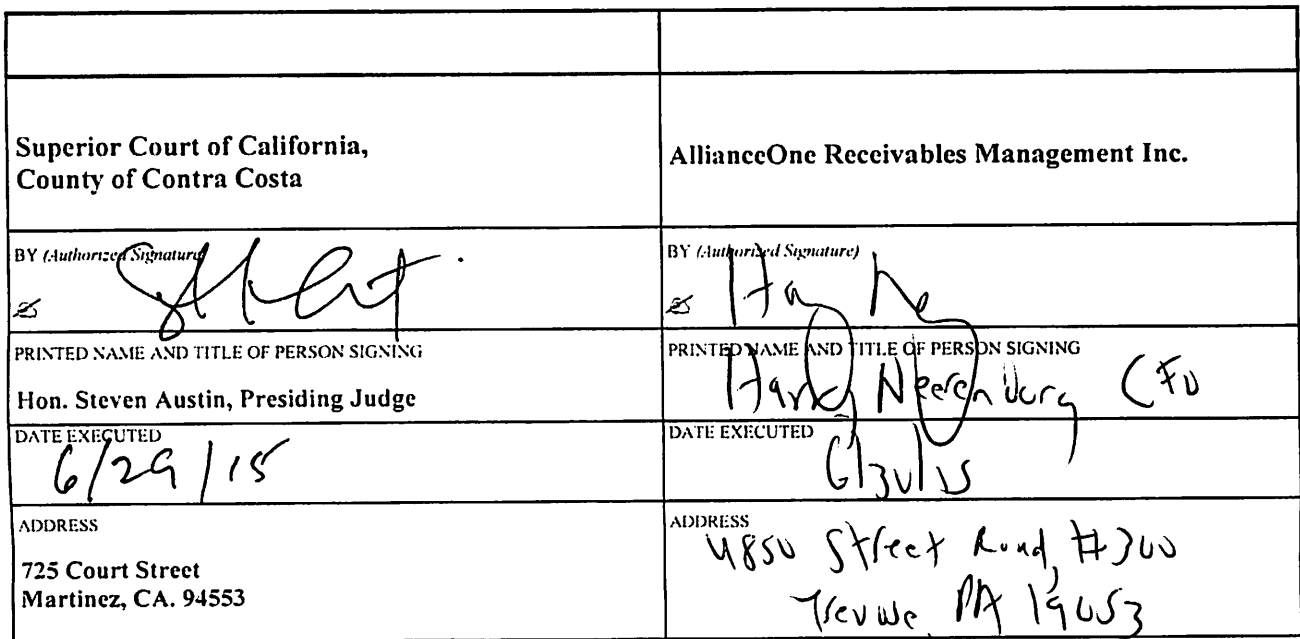 Superior Court of California,
County of Contra Costa
AllianceOne Receivables Management Inc.
BY (Authorized Signature)
BY (Authorized Signature)
PRINTED NAME AND TITLE OF PERSON SIGNING
Hon. Steven Austin, Presiding Judge
PRINTED NAME AND TITLE OF PERSON SIGNING
Harry Neerenburg CFO
DATE EXECUTED
6/29/15
DATE EXECUTED
6/30/15
ADDRESS
725 Court Street
Martinez, CA. 94553
ADDRESS
4850 Street Road, #300
Trevose, PA 19053